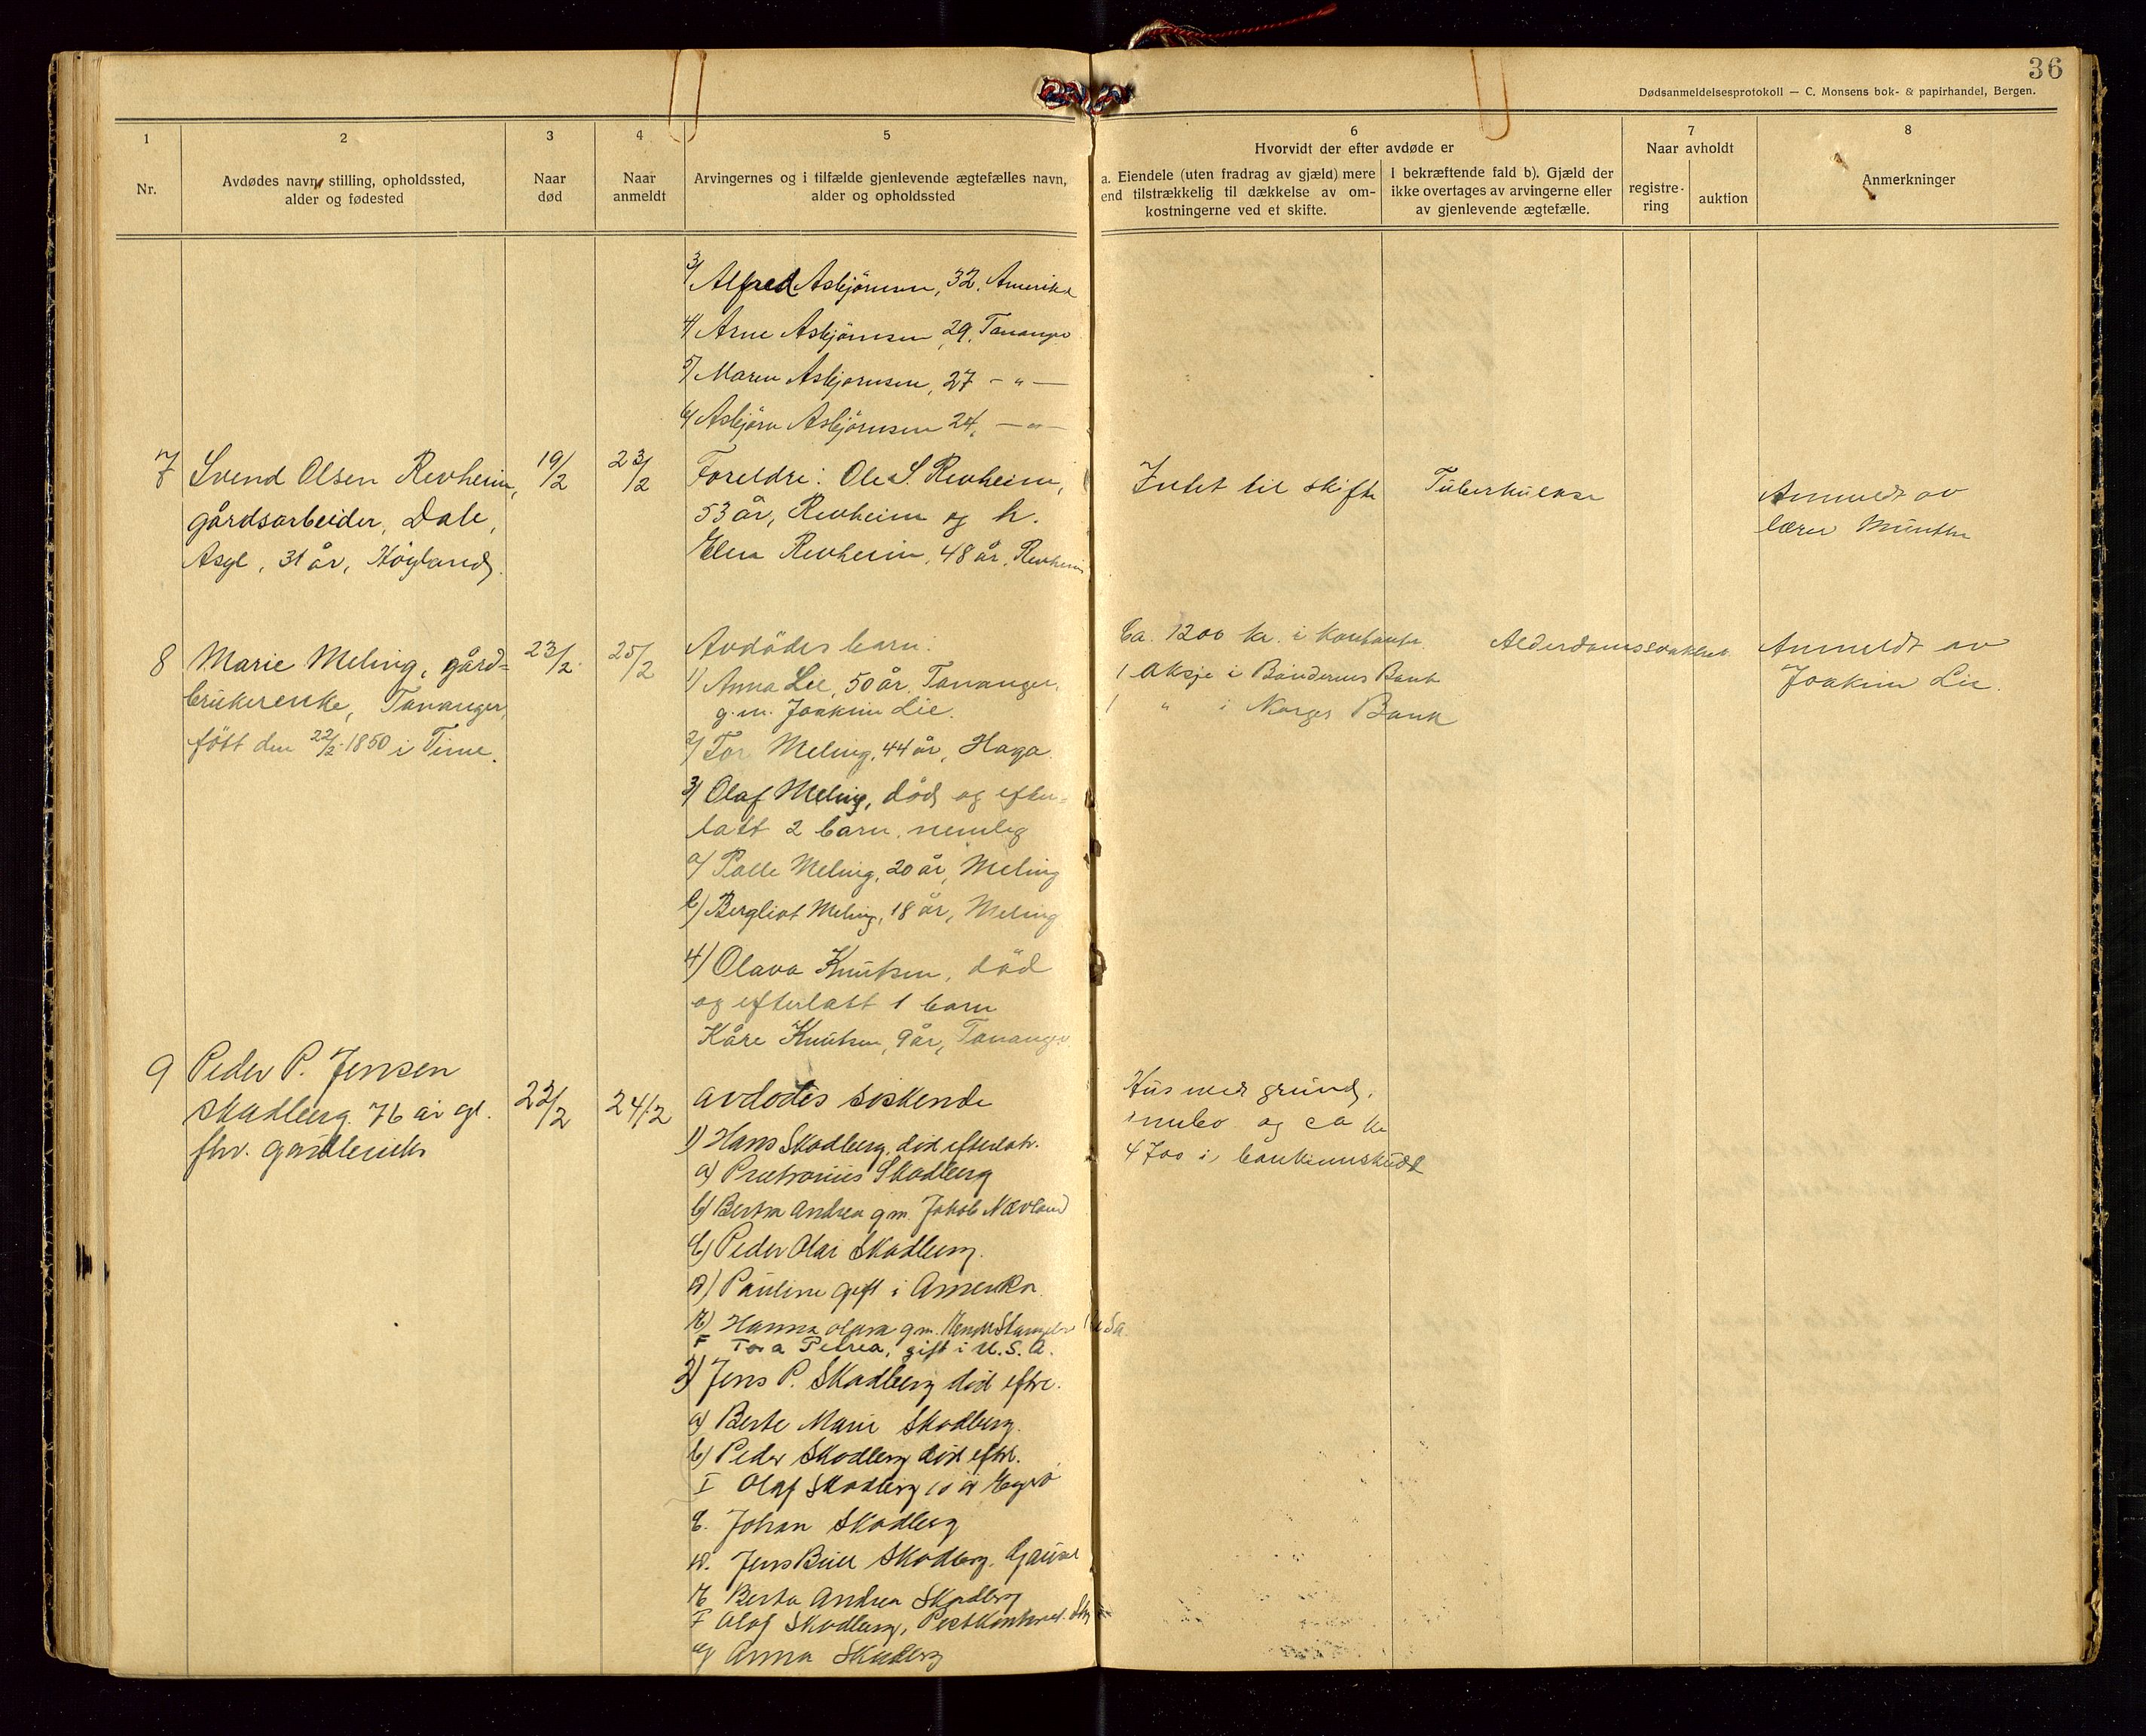 36
Dødsanmeldelsesprotokoll — C. Monsens bok- & papirhandel, Bergen.
1
2
3
4
5
6
7
8
Nr.
Avdødes navn, stilling, opholdssted,
alder og fødested
Naar
død
Naar
anmeldt
Arvingernes og i tilfælde gjenlevende ægtefælles navn,
alder og opholdssted
Hvorvidt der efter avdøde er
a. Eiendele (uten fradrag av gjæld) mere
end tilstrækkelig til dækkelse av om-
kostningerne ved et skifte.
I bekræftende fald b). Gjæld der
ikke overtages av arvingerne eller
av gjenlevende ægtefælle.
Naar avholdt
registre-
ring
auktion
Anmerkninger
3/ Alfred Asbjörnsen, 32, Amerika
4/ Arne Asbjörnsen, 29, Tananger
5/ Maren Asbjornsen, 27 - " -
6/ Asbjörn Asbjörnsen 24, - " -
7 Svend Olsen Revheim,
gårdsarbeider, Dale,
31 år, Höyland.
19/2
23/2
Foreldre: Ole S. Revheim,
53 år, Revheim og h.
Elen Revheim, 48 år, Revheim
Intet til skifte
Tuberkulose
Anmeldt av
lærer Munthe
8 Marie Meling, gård-
brukerenke, Tananger,
född den 22/2 1850 i Time.
23/2
25/2
Avdödes barn:
1) Anna Lie, 50 år, Tananger,
g.m. Joakim Lie.
2/ Tor Meling, 44 år, Haga
3) Olaf Meling, död og efter-
latt 2 barn, nemlig
a/ Palle Meling, 20 år, Meling
b) Bergliot Meling, 18 år, Meling
4) Olava Knutsen, död
og efterlatt 1 barn
Kåre Knutsen, 9 år, Tananger.
Ca. 1200 kr. i kontanter
1 aksje i Böndernes Bank
1 " i Norges Bank
Alderdomssvakhet
Anmeldt av
Joakim Lie.
9 Peder P. Jensen
Skadberg 76 år gl.
fhv. gårdbruker
22/2
24/2
avdødes søskende
1) Hans Skadberg, död efterlatt.
a) Skadberg
b) Berta Andrea g.m. Jakob Nævland
c) Peder Olai Skadberg.
d) Pauline gift i Amerika.
e) Hanna Olava g.m.
F Tora Petrea, gift i U.S.A.
2) Jens P. Skadberg död efterl.
a) Berte Marie Skadberg.
b) Peder Skadberg död efterl.
I Olaf Skadberg 10 år
c. Johan Skadberg
d. Jens Skadberg, Gausel
e Berta Andrea Skadberg
F Olaf Skadberg, Postkontoret,
g Anna Skadberg
Hus med grund,
innbo og ca kr
4700 i bankinnskudd